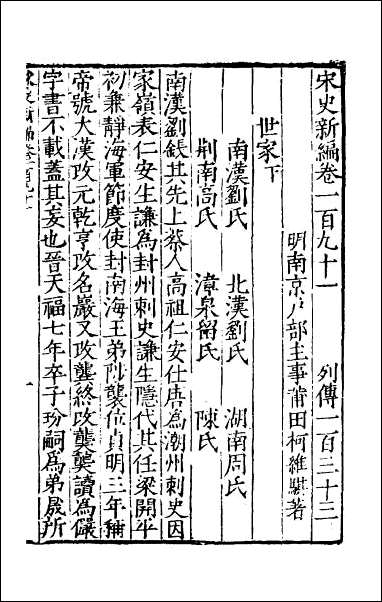 宋史新編卷一百九十一 列傳一百三十三
明南京戶部主事莆田柯維騏著
世家下
南漢劉氏 北漢劉氏 湖南周氏
荆南高氏 漳泉留氏 陳氏
南漢劉鋹其先上蔡人高祖仁安仕唐為潮州刺史因
家嶺表仁安生謙為封州刺史謙生隱代其任梁開平
初兼靜海軍節度使封南海王弟陟襲位貞明三年稱
帝號大漢改元乾亨改名巖又改龔終改龑龑讀為儼
字書不載蓋其妄也晉天福七年卒子玢嗣為弟晟所